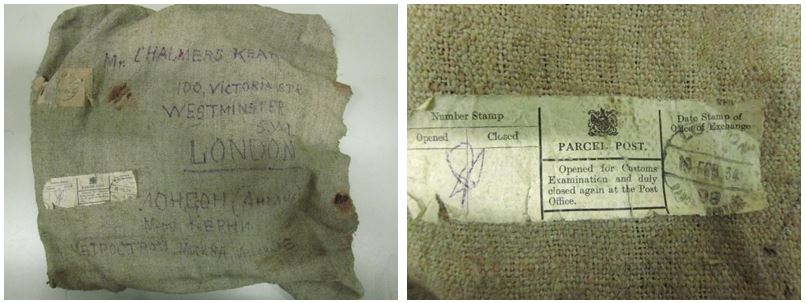 Mr. CHALMERS KEAR
100, VICTORIA STR
WESTMINSTER
S.W.1
LONDON
ЛОНДОН (Англ
М-ру КЕРНИ
МЕТРОСТРОЙ, Москва
Number Stamp
Opened Closed
PARCEL POST.
Opened for Customs
Examination and duly
closed again at the Post
Office.
Date Stamp of
Office of Exchange
FEB 34